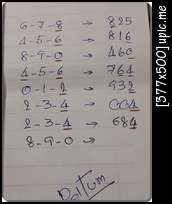 6-7-8 → 825
4-5-6 → 816
8-9-0 → 460
4-5-6 → 764
0-1-2 → 932
2-3-4 → 664
2-3-4 → 684
8-9-0 →
Paltum
[377x500] uplc.me